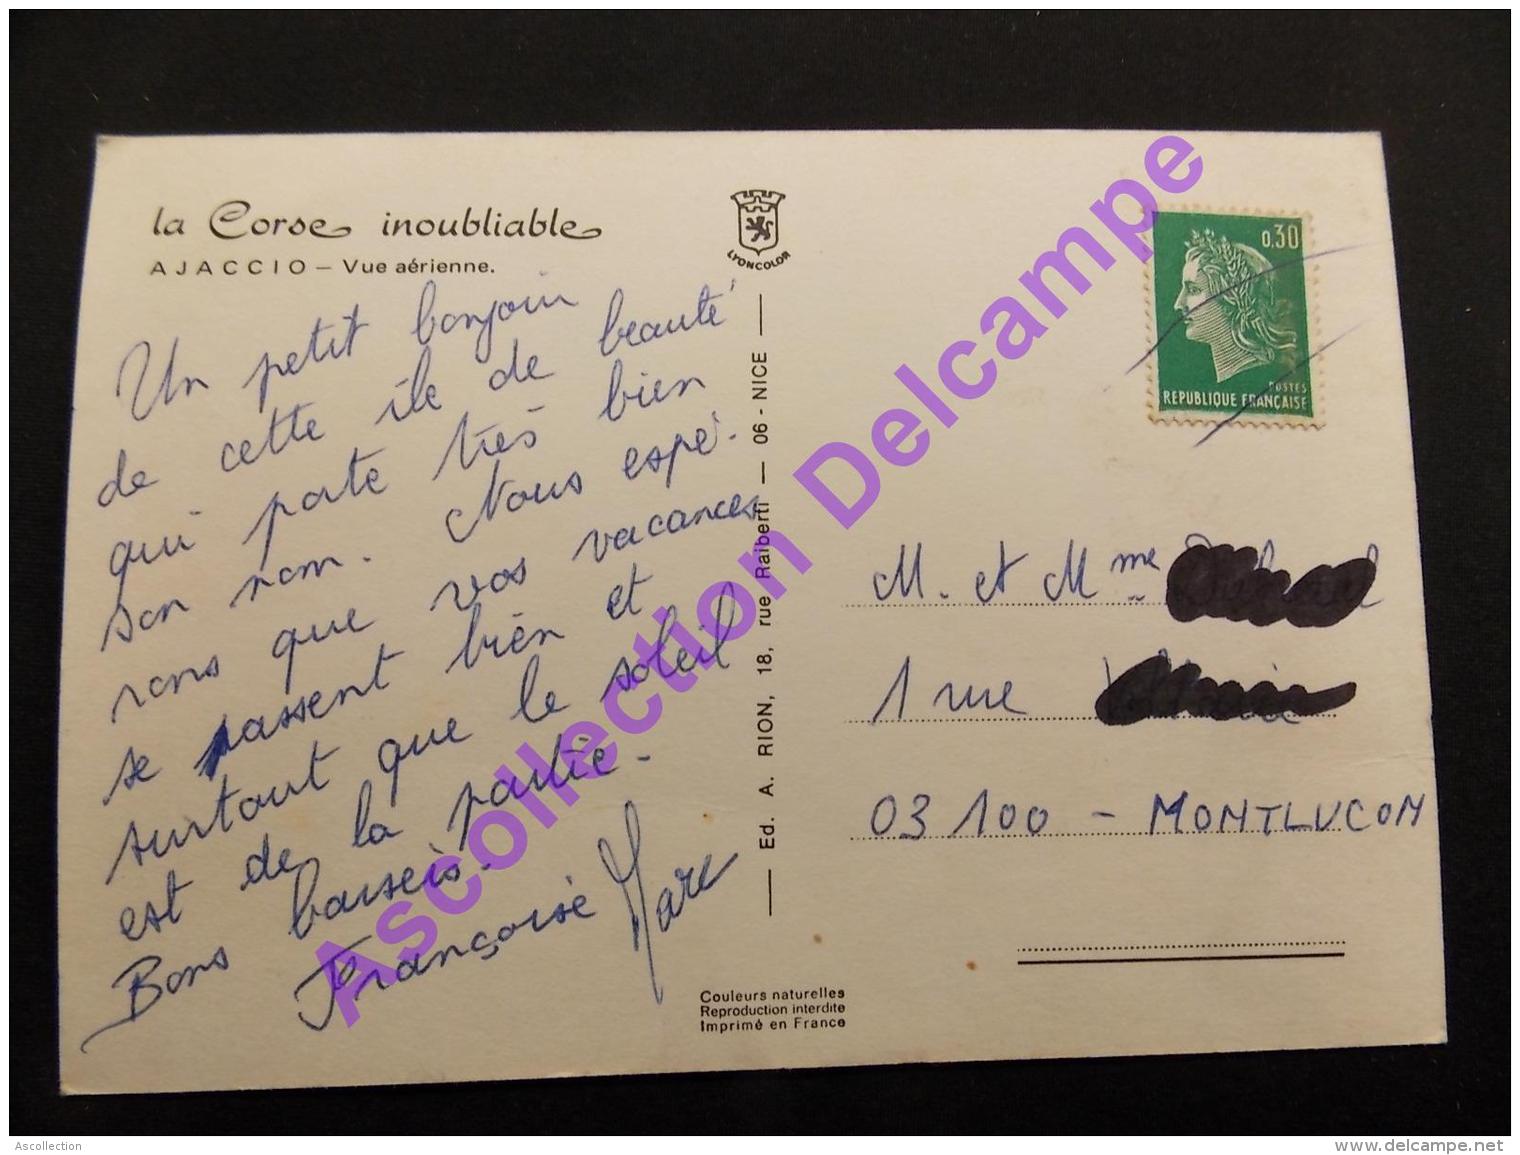 la Corse inoubliable
AJACCIO — Vue aérienne.
LYONCOLOR
Un petit bonjour
de cette île de beauté
qui porte très bien
son nom. Nous espé-
rons que vos vacances
se passent bien et
surtout que le soleil
est de la partie.
Bons baisers.
Françoise Marc
Ed. A. RION, 18, rue Raiberti — 06 - NICE
Couleurs naturelles
Reproduction interdite
Imprimé en France
0,30
POSTES
REPUBLIQUE FRANÇAISE
M. et Mme
1 rue
03100 - MONTLUCON
Ascollection Delcampe
Ascollection
www.delcampe.net